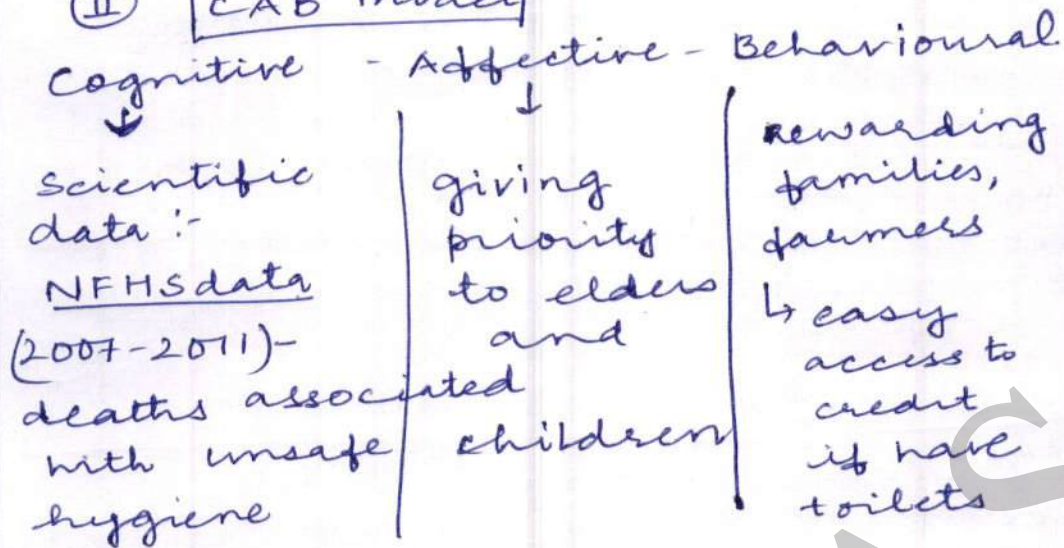 II CAB model
Cognitive - Affective - Behavioural
scientific
data :-
NFHS data
(2007-2011)-
deaths associated
with unsafe
hygiene
giving
priority
to elders
and
children
rewarding
families,
farmers
↳ easy
access to
credit
if have
toilets